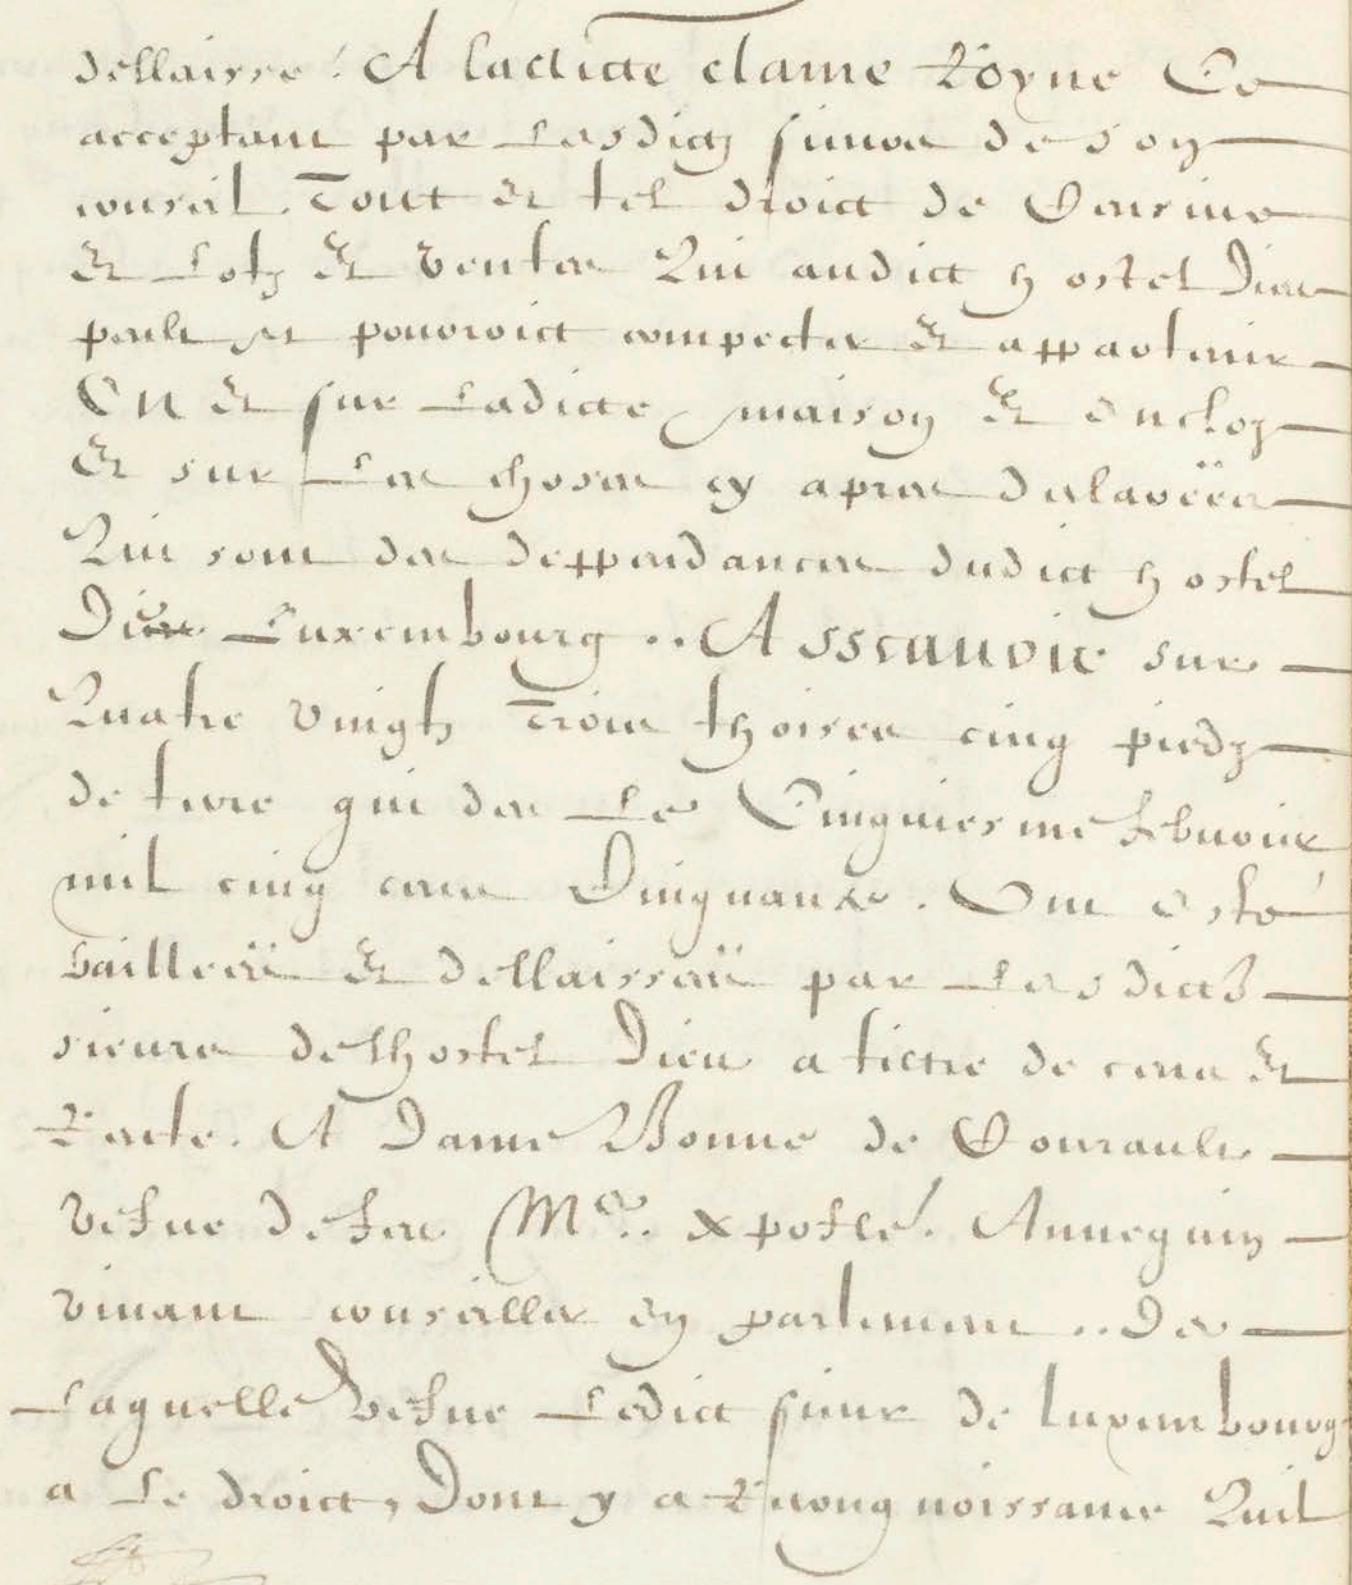 dellaisse. A ladicte dame Royne Ce
acceptant par lesdictz sieurs de son
conseil. Tout et tel droict de Censive
et lotz et ventes Qui audict hostel Dieu
peult et pouvroict compecter et appartenir
En et sur ladicte maison et encloz
et sur les choses cy apres declarées
Qui sont des deppendances dudict hostel
Dieu Luxembourg .. Asscauoir sur
Quatre vingtz Trois thoises cinq piedz
de terre qui des le Cinquiesme febvrier
mil cinq cens Cinquante. Ont esté
bailleez et dellaissez par lesdictz
sieurs delhostel Dieu a tictre de cens et
Rente. A Dame Bonne de
vefue de feu Me. xpofle. Annequin
vivant conseiller en parlement .. De
Laquelle vefue Ledict sieur de luxembourg
a le droict, Dont y a Recongnoissance Quil